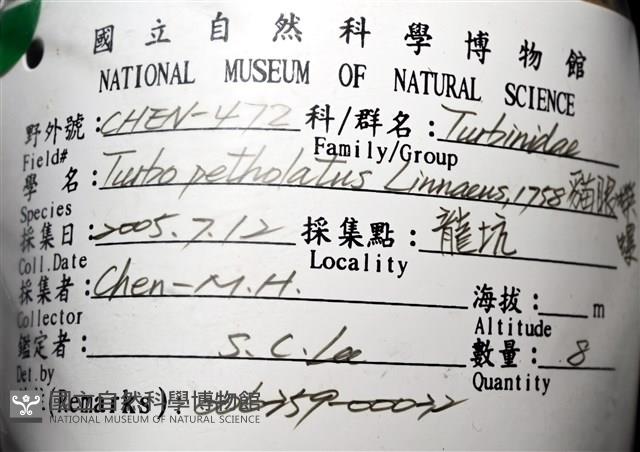 國立自然科學博物館
NATIONAL MUSEUM OF NATURAL SCIENCE
野外號:CHEN-472 科/群名:Turbinidae
Field# Family/Group
學 名:Turbo petholatus Linnaeus, 1758 貓眼蠑螺
Species
採集日:2005.7.12 採集點:龍坑
Coll.Date Locality
採集者:Chen-M.H. 海拔: m
Collector Altitude
鑑定者: S.C.Lee 數量: 8
Det.by Quantity
(Remarks):
國立自然科學博物館
NATIONAL MUSEUM OF NATURAL SCIENCE